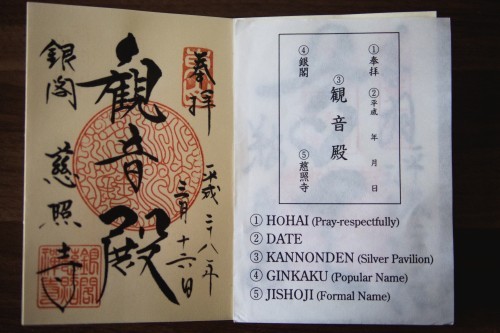 奉拝
平成二十八年
三月十六日
観音殿
銀閣 慈照寺
①奉拝 ②平成 年 月 日
③観音殿
④銀閣 ⑤慈照寺
① HOHAI (Pray-respectfully)
② DATE
③ KANNONDEN (Silver Pavilion)
④ GINKAKU (Popular Name)
⑤ JISHOJI (Formal Name)